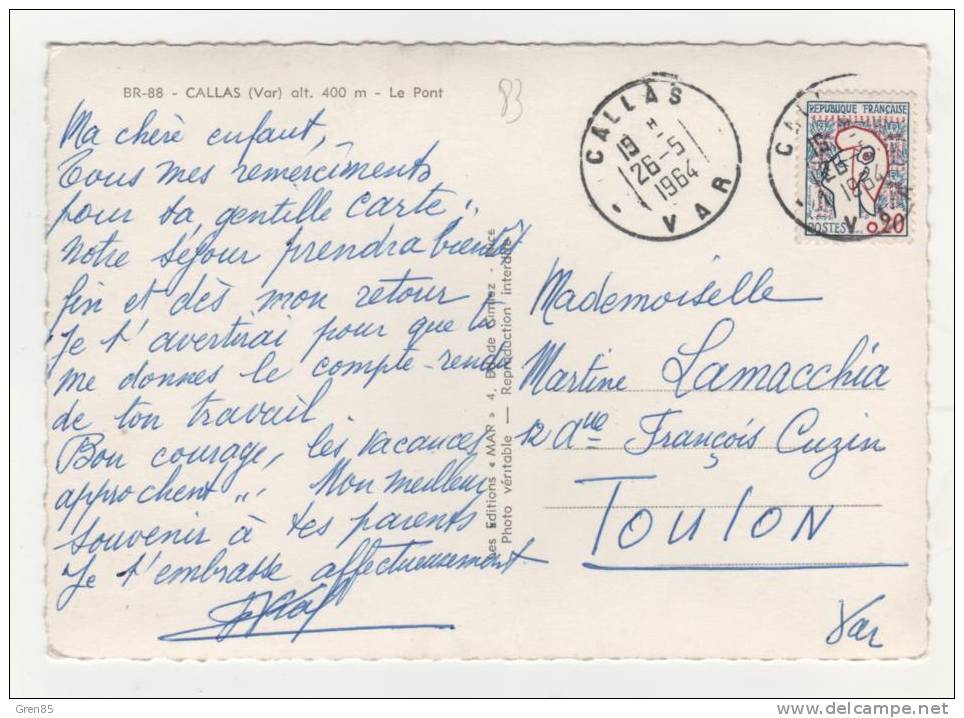 BR-88 - CALLAS (Var) alt. 400 m - Le Pont
83
Ma chère enfant,
Tous mes remerciments
pour ta gentille carte ;
Notre séjour prendra bientôt
fin et dès mon retour
Je t'avertirai pour que tu
me donnes le compte-rendu
de ton travail.
Bon courage, les vacances
approchent ,,. Mon meilleur
souvenir à tes parents
Je t'embrasse affectueusement
Les Editions « MAR » 4, de Cimiez - Nice
Photo véritable — Reproduction interdite
CALLAS
19
26-5
1964
VAR
REPUBLIQUE FRANÇAISE
POSTES
0,20
26
1964
Mademoiselle
Martine Lamacchia
12 Aue François Cuzin
TOULON
Var
Gren85
delcampe.net